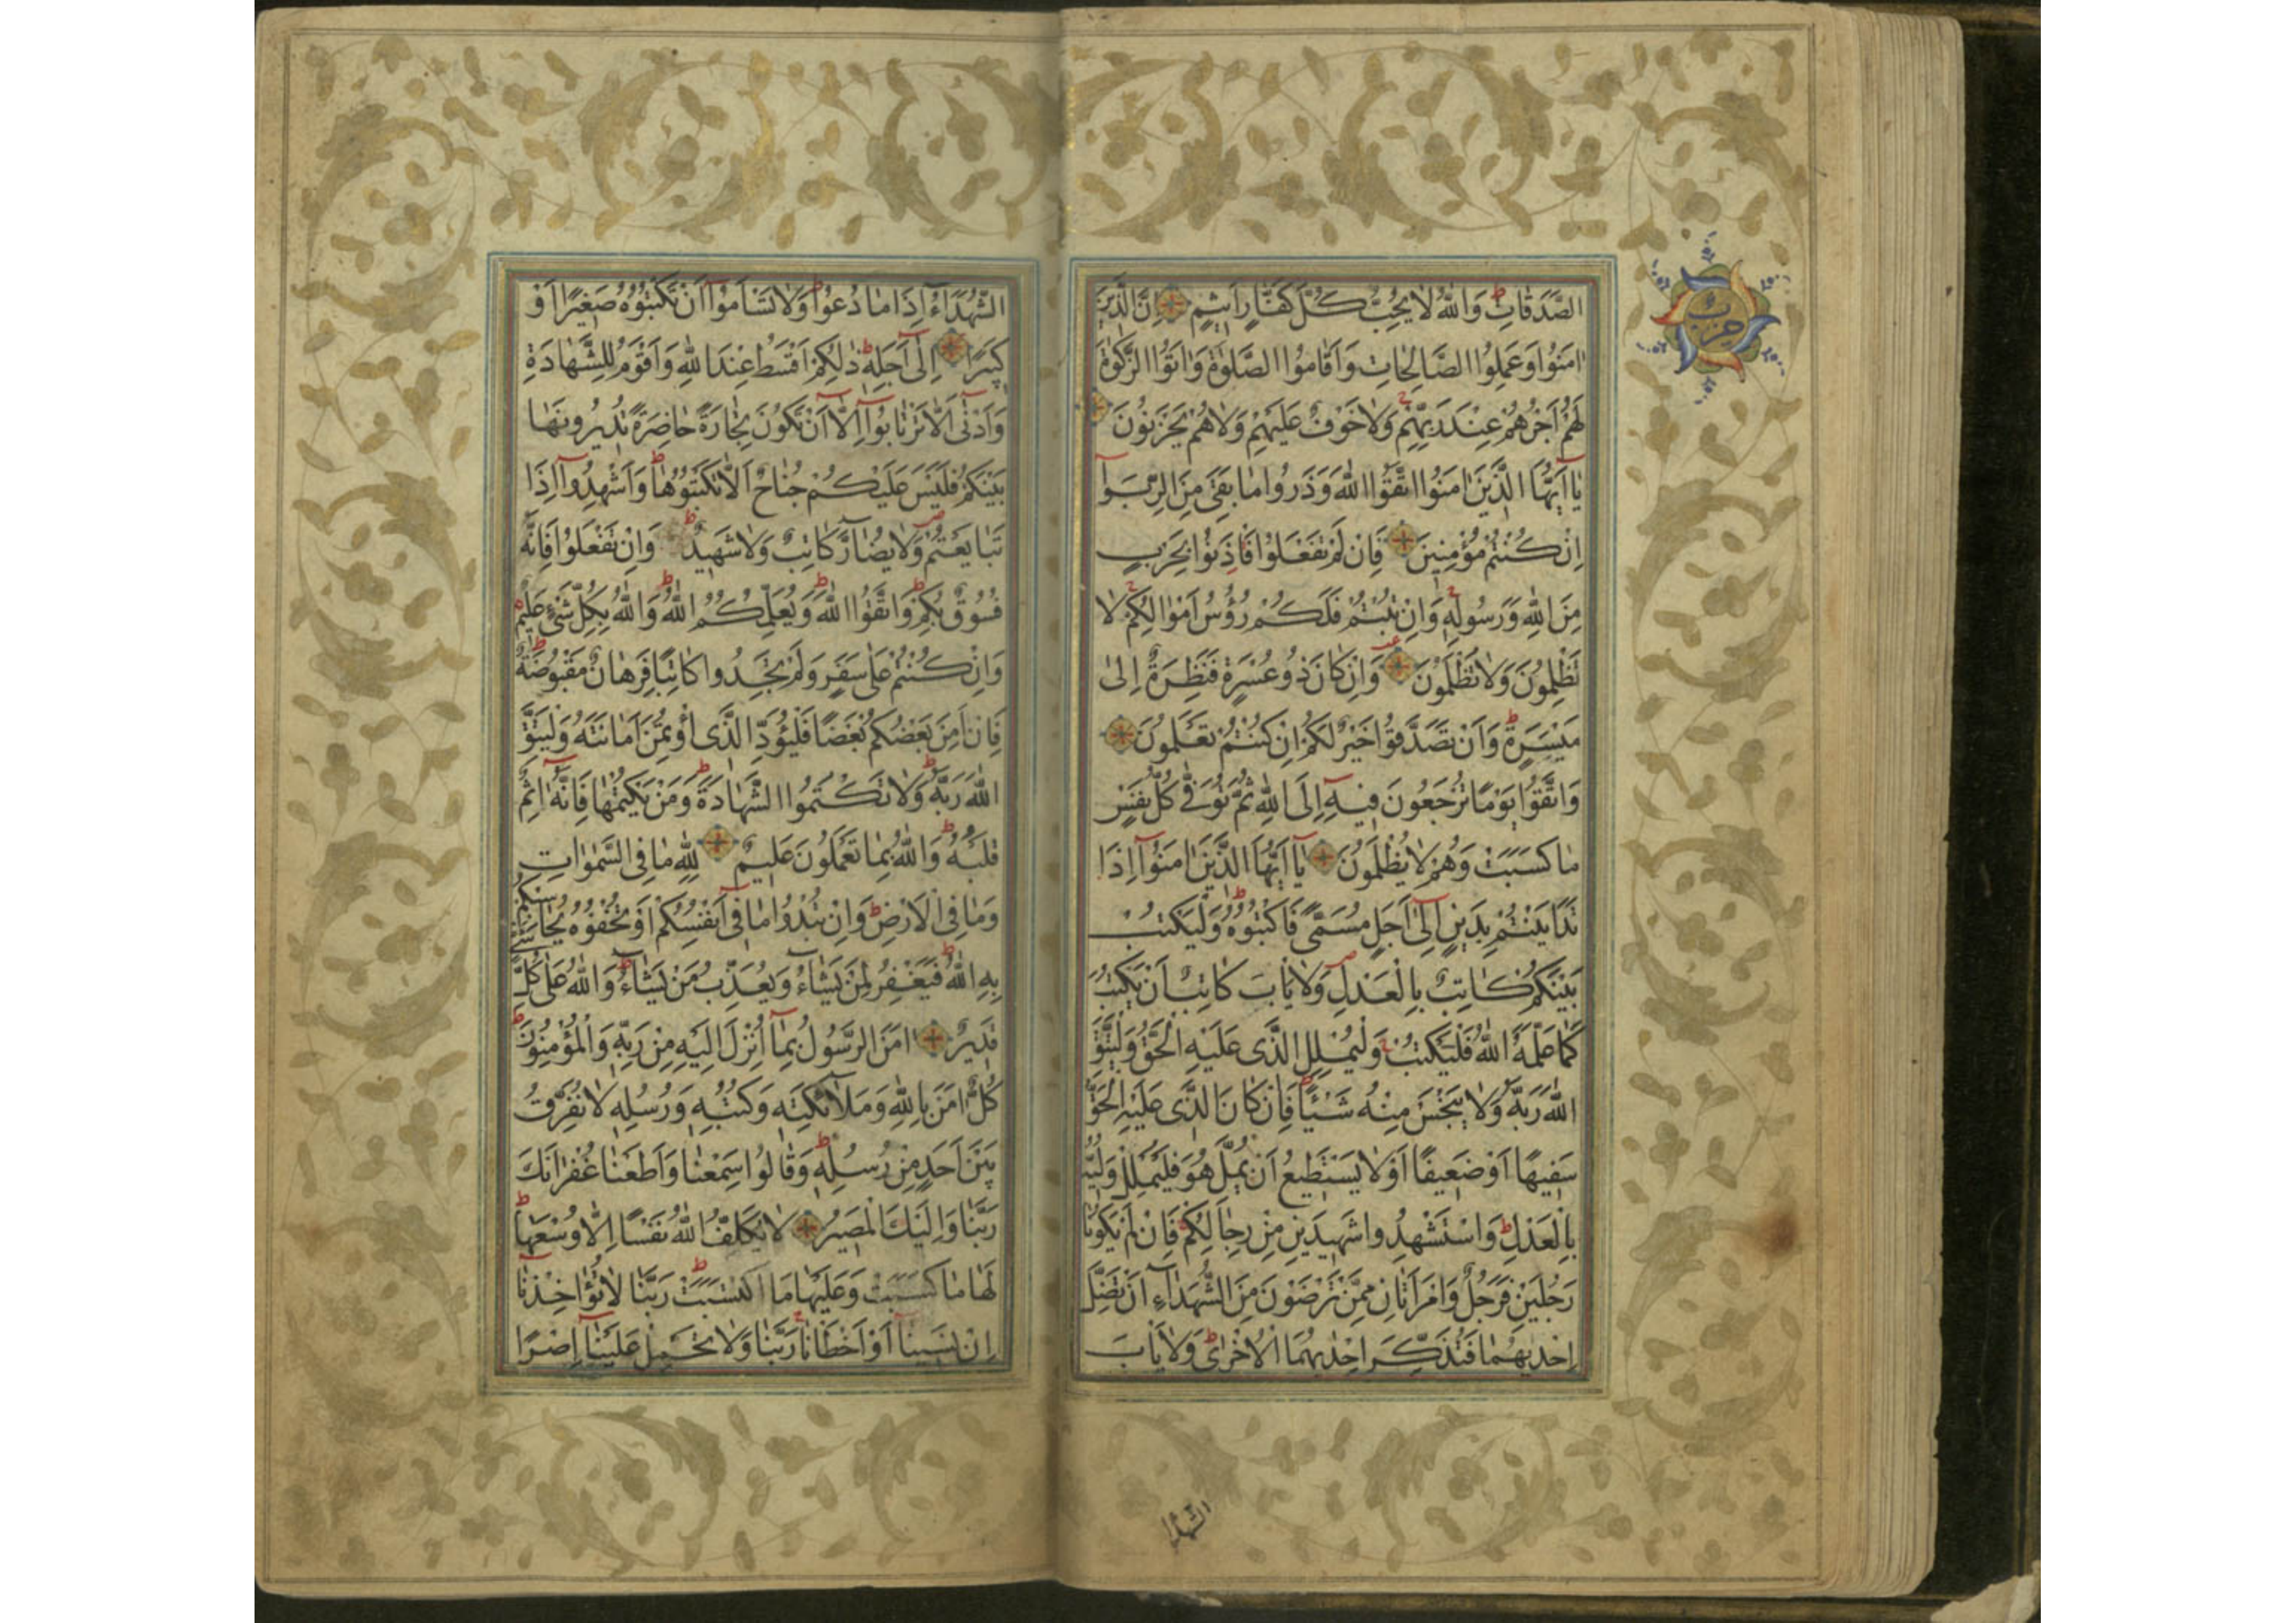 الصَّدَقَاتِ وَاللّٰهُ لَا يُحِبُّ كُلَّ كَفَّارٍ اَثٖيمٍ اِنَّ الَّذٖينَ
اٰمَنُوا وَعَمِلُوا الصَّالِحَاتِ وَاَقَامُوا الصَّلٰوةَ وَاٰتَوُا الزَّكٰوةَ
لَهُمْ اَجْرُهُمْ عِنْدَ رَبِّهِمْ وَلَا خَوْفٌ عَلَيْهِمْ وَلَا هُمْ يَحْزَنُونَ
يَا اَيُّهَا الَّذٖينَ اٰمَنُوا اتَّقُوا اللّٰهَ وَذَرُوا مَا بَقِيَ مِنَ الرِّبٰوا
اِنْ كُنْتُمْ مُؤْمِنٖينَ فَاِنْ لَمْ تَفْعَلُوا فَاْذَنُوا بِحَرْبٍ
مِنَ اللّٰهِ وَرَسُولِهٖ وَاِنْ تُبْتُمْ فَلَكُمْ رُؤُسُ اَمْوَالِكُمْ لَا
تَظْلِمُونَ وَلَا تُظْلَمُونَ وَاِنْ كَانَ ذُو عُسْرَةٍ فَنَظِرَةٌ اِلٰى
مَيْسَرَةٍ وَاَنْ تَصَدَّقُوا خَيْرٌ لَكُمْ اِنْ كُنْتُمْ تَعْلَمُونَ
وَاتَّقُوا يَوْمًا تُرْجَعُونَ فٖيهِ اِلَى اللّٰهِ ثُمَّ تُوَفّٰى كُلُّ نَفْسٍ
مَا كَسَبَتْ وَهُمْ لَا يُظْلَمُونَ يَا اَيُّهَا الَّذٖينَ اٰمَنُوا اِذَا
تَدَايَنْتُمْ بِدَيْنٍ اِلٰى اَجَلٍ مُسَمًّى فَاكْتُبُوهُ وَلْيَكْتُبْ
بَيْنَكُمْ كَاتِبٌ بِالْعَدْلِ وَلَا يَاْبَ كَاتِبٌ اَنْ يَكْتُبَ
كَمَا عَلَّمَهُ اللّٰهُ فَلْيَكْتُبْ وَلْيُمْلِلِ الَّذٖى عَلَيْهِ الْحَقُّ وَلْيَتَّقِ
اللّٰهَ رَبَّهُ وَلَا يَبْخَسْ مِنْهُ شَيْئًا فَاِنْ كَانَ الَّذٖى عَلَيْهِ الْحَقُّ
سَفٖيهًا اَوْ ضَعٖيفًا اَوْ لَا يَسْتَطٖيعُ اَنْ يُمِلَّ هُوَ فَلْيُمْلِلْ وَلِيُّهُ
بِالْعَدْلِ وَاسْتَشْهِدُوا شَهٖيدَيْنِ مِنْ رِجَالِكُمْ فَاِنْ لَمْ يَكُونَا
رَجُلَيْنِ فَرَجُلٌ وَامْرَاَتَانِ مِمَّنْ تَرْضَوْنَ مِنَ الشُّهَدَاءِ اَنْ تَضِلَّ
اِحْدٰيهُمَا فَتُذَكِّرَ اِحْدٰيهُمَا الْاُخْرٰى وَلَا يَاْبَ
الشهدا
حزب
الشُّهَدَاءُ اِذَا مَا دُعُوا وَلَا تَسْاَمُوا اَنْ تَكْتُبُوهُ صَغٖيرًا اَوْ
كَبٖيرًا اِلٰى اَجَلِهٖ ذٰلِكُمْ اَقْسَطُ عِنْدَ اللّٰهِ وَاَقْوَمُ لِلشَّهَادَةِ
وَاَدْنٰى اَلَّا تَرْتَابُوا اِلَّا اَنْ تَكُونَ تِجَارَةً حَاضِرَةً تُدٖيرُونَهَا
بَيْنَكُمْ فَلَيْسَ عَلَيْكُمْ جُنَاحٌ اَلَّا تَكْتُبُوهَا وَاَشْهِدُوا اِذَا
تَبَايَعْتُمْ وَلَا يُضَارَّ كَاتِبٌ وَلَا شَهٖيدٌ وَاِنْ تَفْعَلُوا فَاِنَّهُ
فُسُوقٌ بِكُمْ وَاتَّقُوا اللّٰهَ وَيُعَلِّمُكُمُ اللّٰهُ وَاللّٰهُ بِكُلِّ شَيْءٍ عَلٖيمٌ
وَاِنْ كُنْتُمْ عَلٰى سَفَرٍ وَلَمْ تَجِدُوا كَاتِبًا فَرِهَانٌ مَقْبُوضَةٌ
فَاِنْ اَمِنَ بَعْضُكُمْ بَعْضًا فَلْيُؤَدِّ الَّذٖى اؤْتُمِنَ اَمَانَتَهُ وَلْيَتَّقِ
اللّٰهَ رَبَّهُ وَلَا تَكْتُمُوا الشَّهَادَةَ وَمَنْ يَكْتُمْهَا فَاِنَّهُ اٰثِمٌ
قَلْبُهُ وَاللّٰهُ بِمَا تَعْمَلُونَ عَلٖيمٌ لِلّٰهِ مَا فِى السَّمٰوَاتِ
وَمَا فِى الْاَرْضِ وَاِنْ تُبْدُوا مَا فٖى اَنْفُسِكُمْ اَوْ تُخْفُوهُ يُحَاسِبْكُمْ
بِهِ اللّٰهُ فَيَغْفِرُ لِمَنْ يَشَاءُ وَيُعَذِّبُ مَنْ يَشَاءُ وَاللّٰهُ عَلٰى كُلِّ شَيْءٍ
قَدٖيرٌ اٰمَنَ الرَّسُولُ بِمَا اُنْزِلَ اِلَيْهِ مِنْ رَبِّهٖ وَالْمُؤْمِنُونَ
كُلٌّ اٰمَنَ بِاللّٰهِ وَمَلٰٓئِكَتِهٖ وَكُتُبِهٖ وَرُسُلِهٖ لَا نُفَرِّقُ
بَيْنَ اَحَدٍ مِنْ رُسُلِهٖ وَقَالُوا سَمِعْنَا وَاَطَعْنَا غُفْرَانَكَ
رَبَّنَا وَاِلَيْكَ الْمَصٖيرُ لَا يُكَلِّفُ اللّٰهُ نَفْسًا اِلَّا وُسْعَهَا
لَهَا مَا كَسَبَتْ وَعَلَيْهَا مَا اكْتَسَبَتْ رَبَّنَا لَا تُؤَاخِذْنَا
اِنْ نَسٖينَا اَوْ اَخْطَاْنَا رَبَّنَا وَلَا تَحْمِلْ عَلَيْنَا اِصْرًا